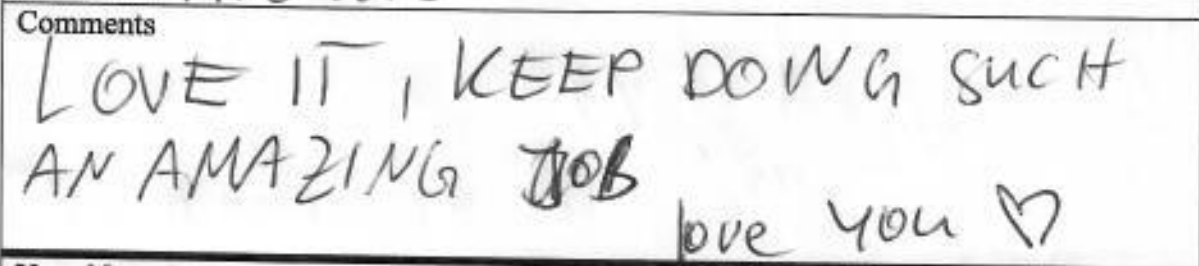 Comments
LOVE IT, KEEP DOING SUCH
AN AMAZING JOB
love you ♡